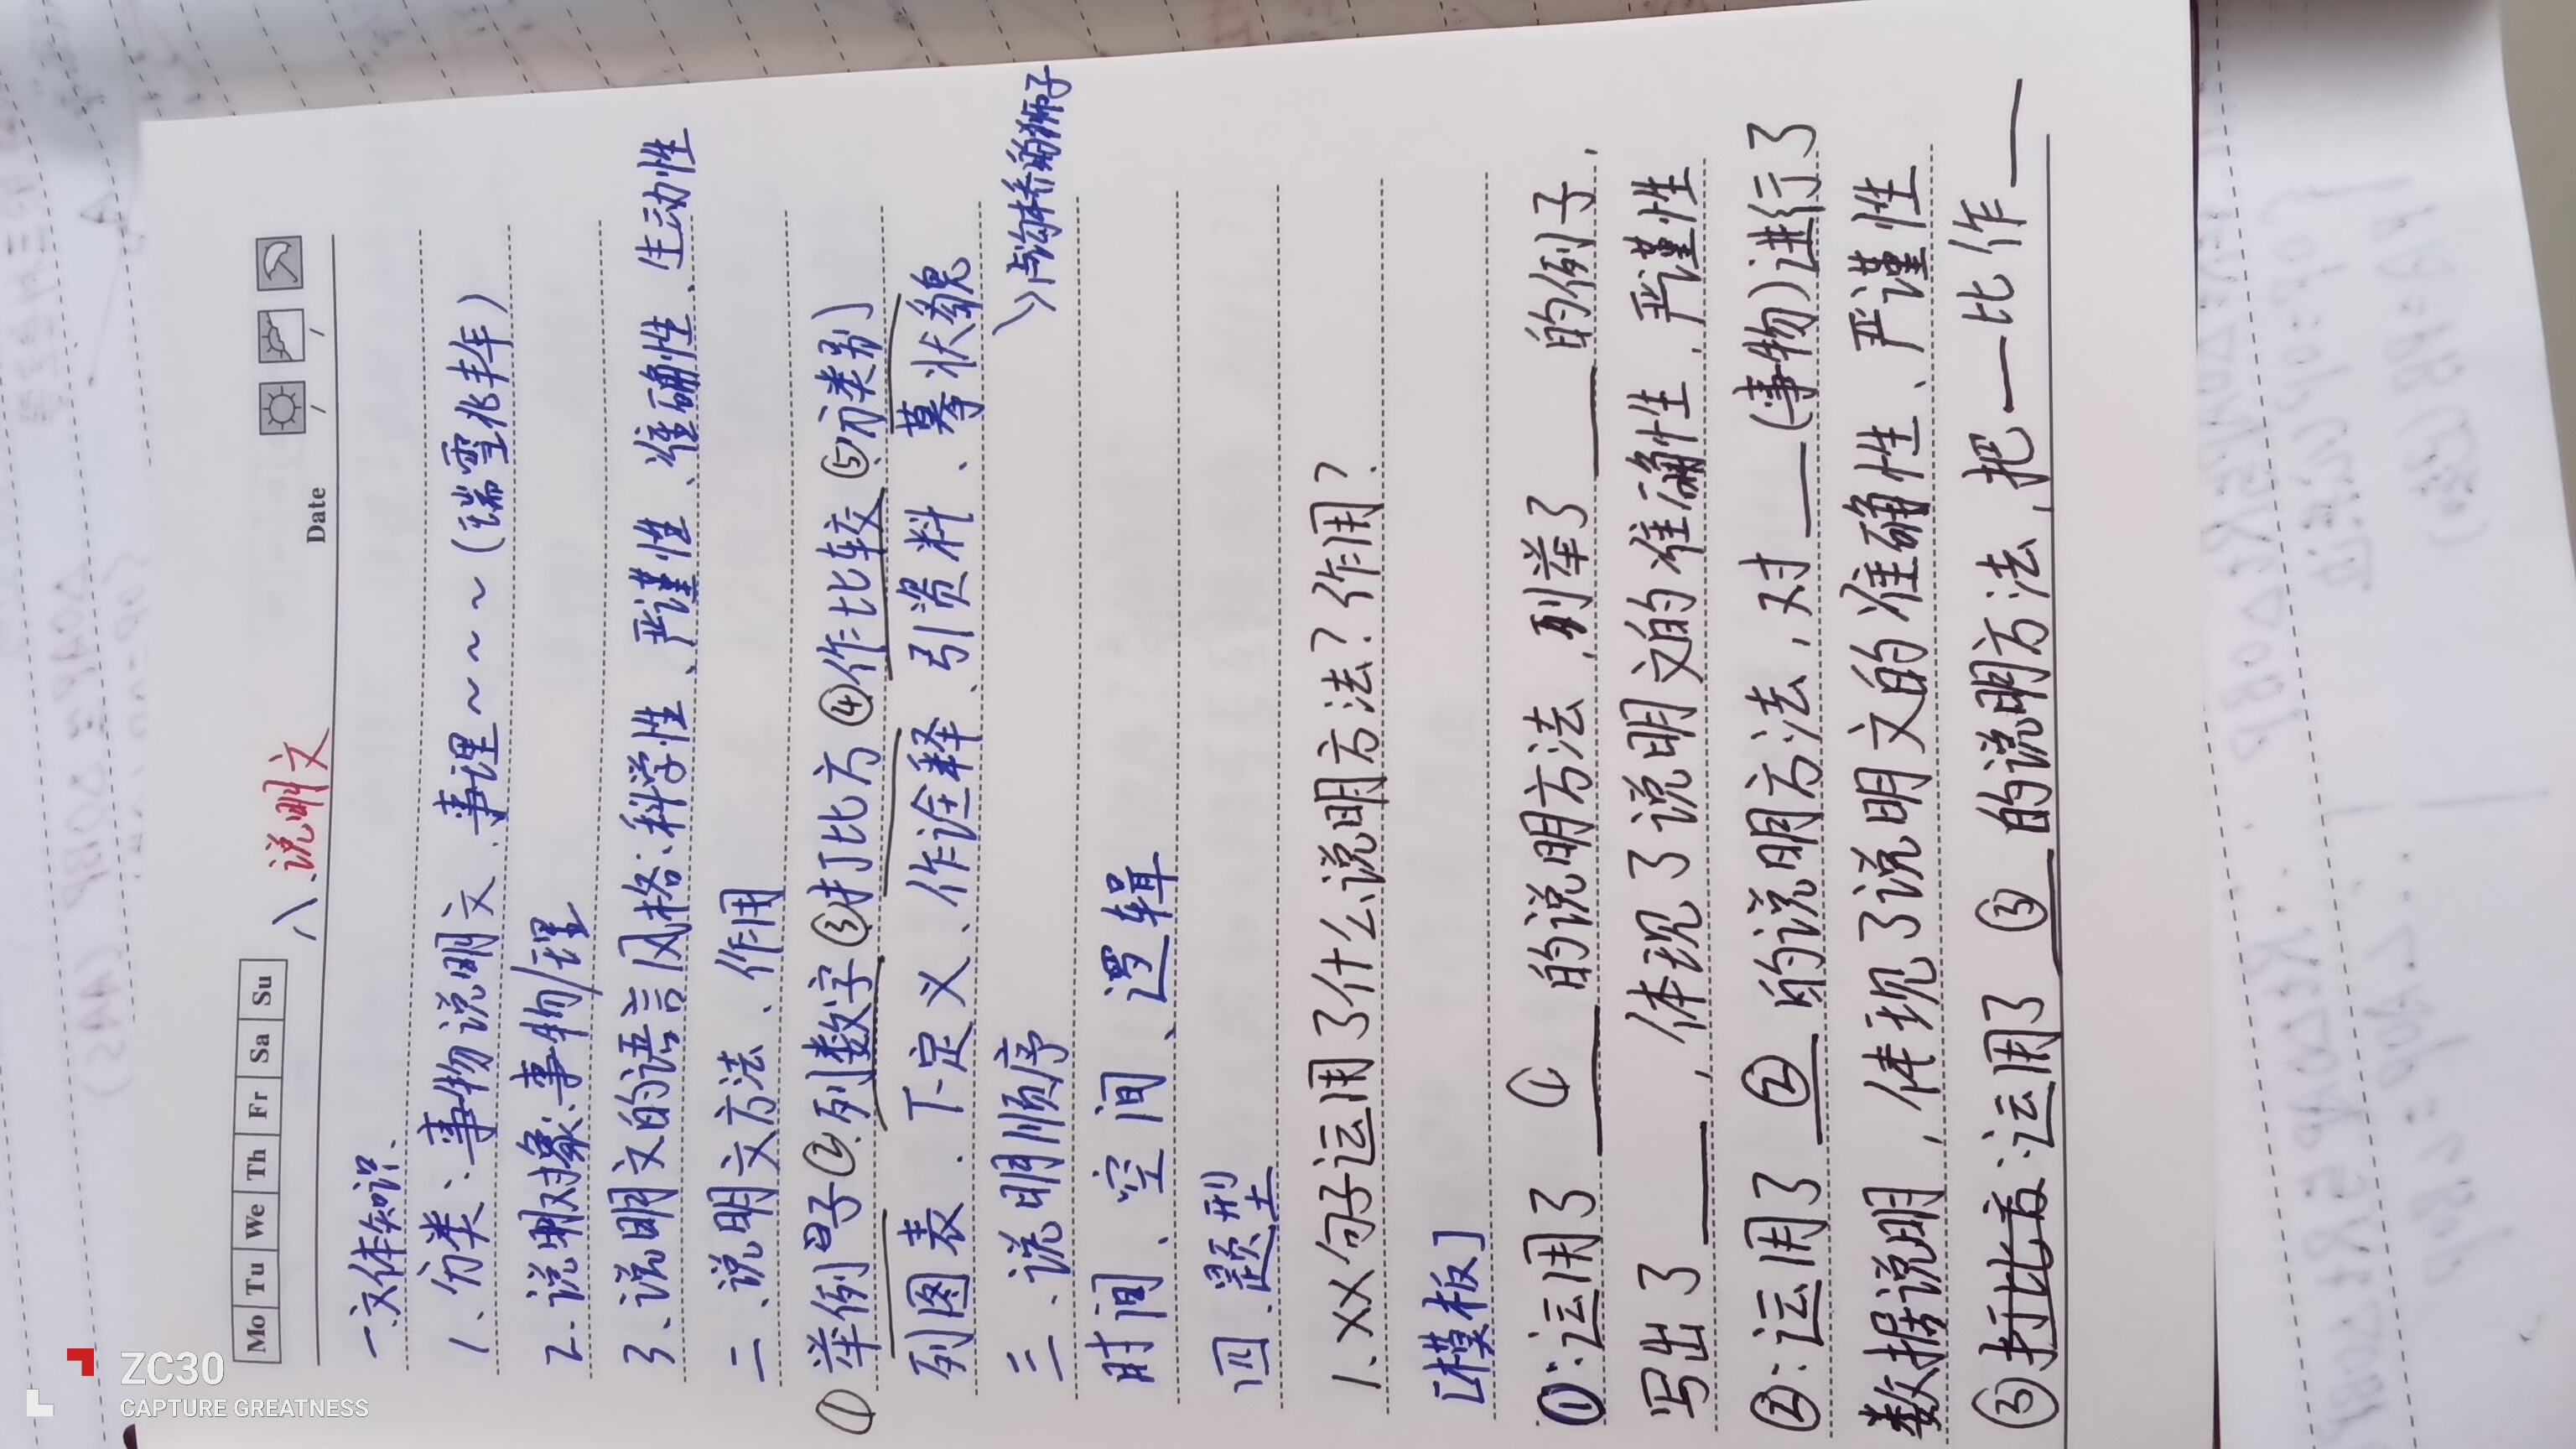 Mo Tu We Th Fr Sa Su
Date / /
八、说明文
一.文体知识.
1、分类:事物说明文、事理~~~~(瑞雪兆丰年)
2.说明对象:事物/理
3、说明文的语言风格:科学性、严谨性、准确性、生动性
二、说明文方法、作用
①举例子②列数字③打比方④作比较⑤分类别]
列图表、下定义、作诠释、引资料、摹状貌
三、说明顺序
→卢沟桥的狮子
时间、空间、逻辑
四.题型
1、XX句子运用了什么说明方法?作用?
[模板]
①:运用了 ① 的说明方法,列举了___的例子,
写出了___,体现了说明文的准确性,严谨性
②:运用了 ② 的说明方法,对___(事物)进行了
数据说明,体现了说明文的准确性、严谨性
③打比方:运用了 ③ 的说明方法,把—比作—
ZC30
CAPTURE GREATNESS